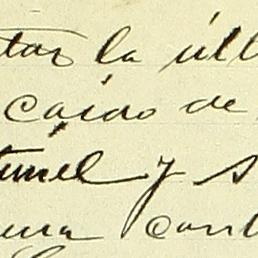 tar la últ
caido de
tunel y s
una cant